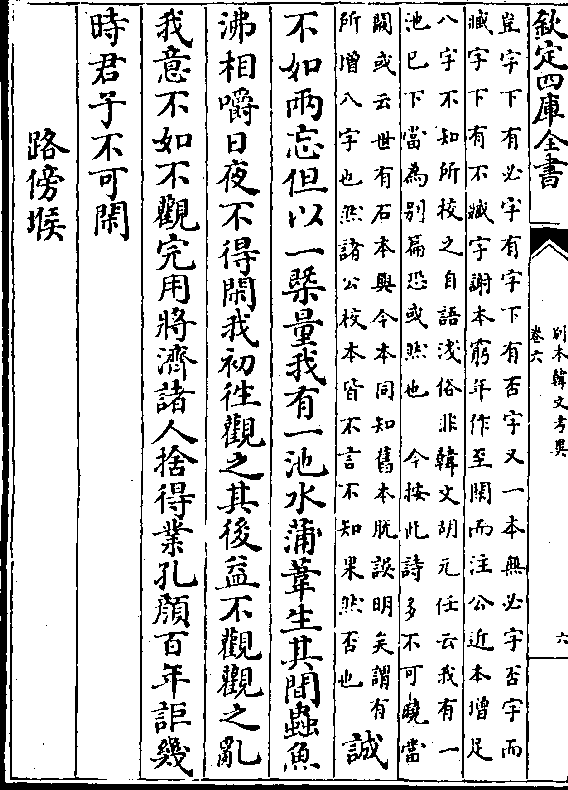 欽定四庫全書
別本韓文考異
卷六
六
豈字下有必字有字下有否字又一本無必字否字而
臧字下有不臧字謝本窮年作至閑而注公近本增足
八字不知所校之自語淺俗非韓文胡元任云我有一
池已下當為别篇恐或然也 今按此詩多不可曉當
闕或云世有石本與今本同知舊本脱誤明矣謂有
所增八字也然諸公校本皆不言不知果然否也 誠
不如兩忘但以一槩量我有一池水蒲葦生其間蟲魚
沸相嚼日夜不得閑我初徃觀之其後益不觀觀之亂
我意不如不觀完用將濟諸人捨得業孔顔百年詎幾
時君子不可閑
路傍堠